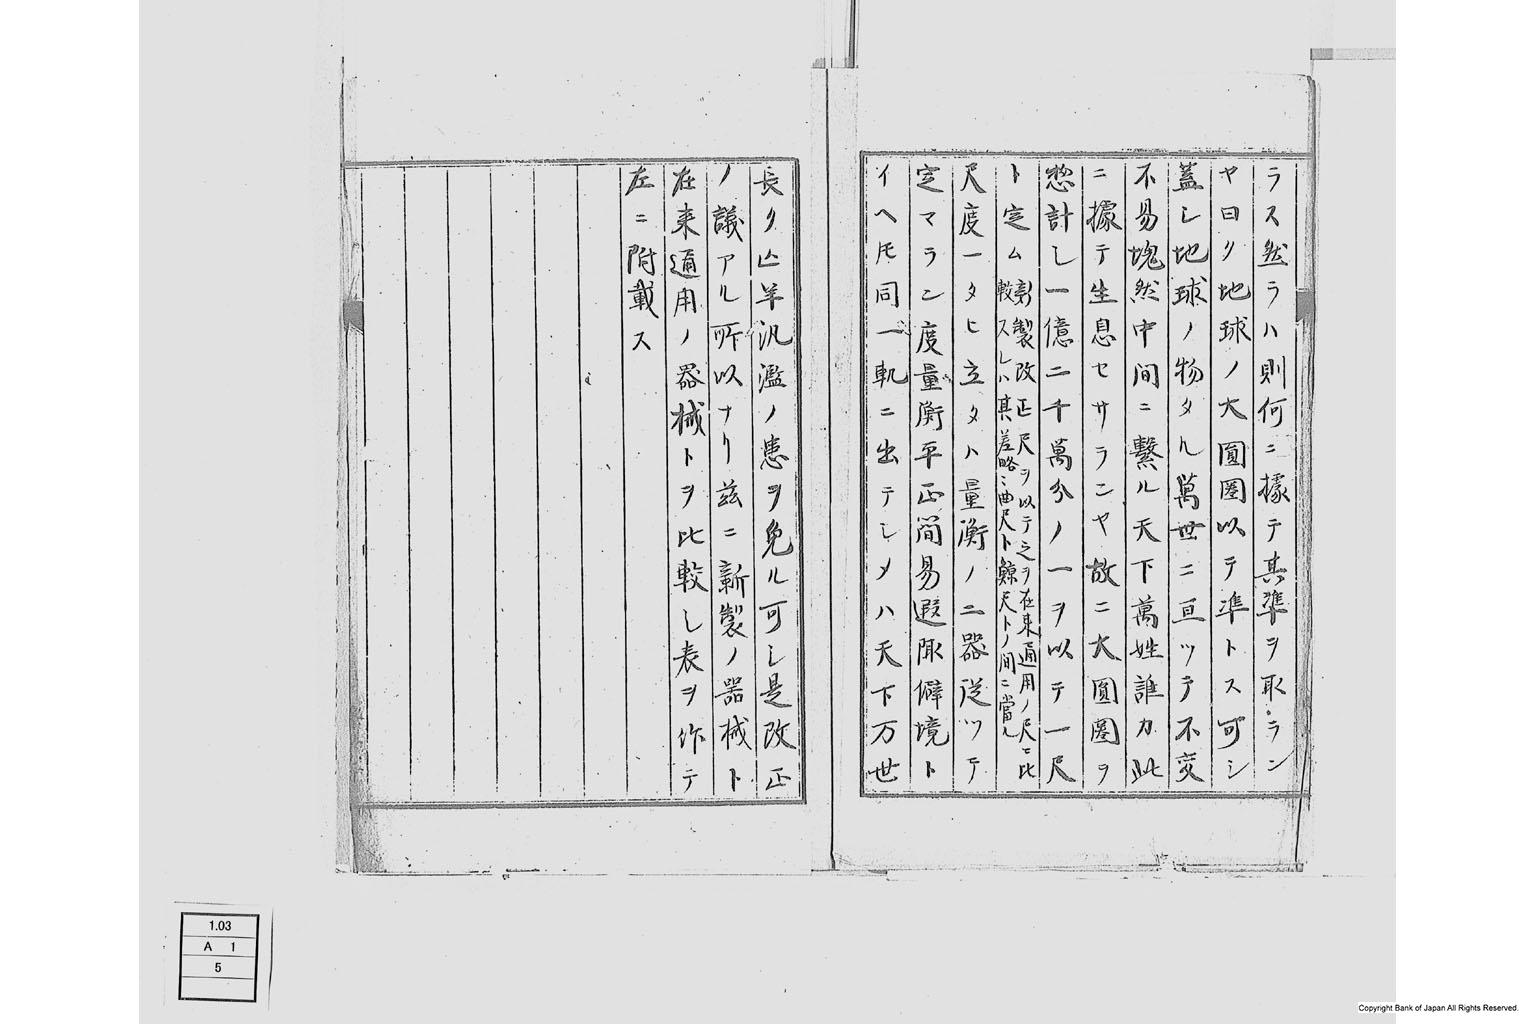 ラス然ラハ則何ニ據テ其準ヲ取ラン
ヤ曰ク地球ノ大圓圏以テ準トス可シ
蓋シ地球ノ物タル萬世ニ亘ツテ不変
不易塊然中間ニ繋ル天下萬姓誰カ此
ニ據テ生息セサランヤ故ニ大圓圏ヲ
惣計シ一億二千萬分ノ一ヲ以テ一尺
ト定ム
新製改正尺ヲ以テ之ヲ在来通用ノ尺ニ比
較スレハ其差略ニ曲尺ト鯨尺トノ間ニ當ル
尺度一タヒ立タハ量衡ノ二器従ツテ
定マラン度量衡平正簡易遐陬僻境ト
イヘ𪜈同一軌ニ出テシメハ天下万世
長ク亾羊汎濫ノ患ヲ免ル可シ是改正
ノ議アル所以ナリ茲ニ新製ノ器械ト
在来通用ノ器械トヲ比較シ表ヲ作テ
左ニ附載ス
1.03
A 1
5
Copyright Bank of Japan All Rights Reserved.